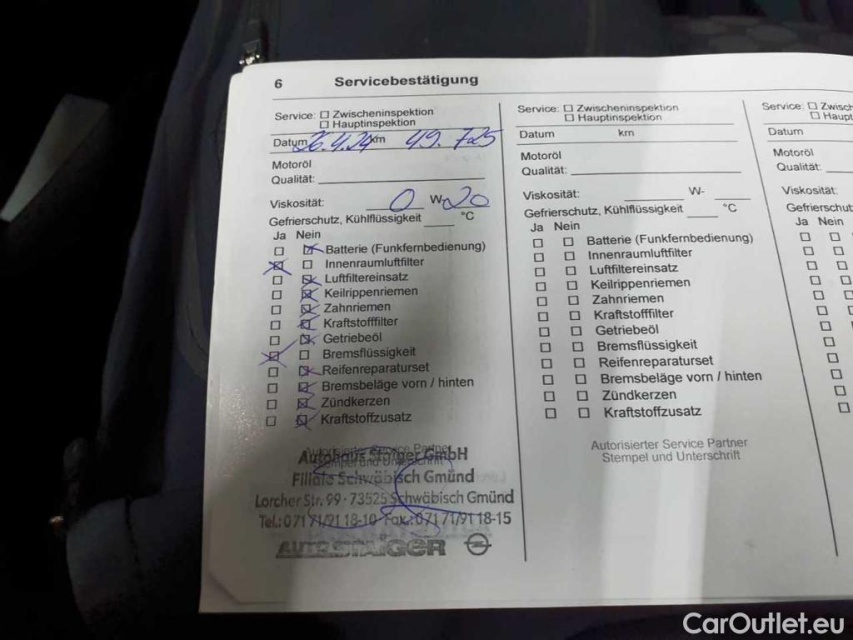 6 Servicebestätigung
Service: ☐ Zwischeninspektion
☐ Hauptinspektion
Datum 26.4.24 km 49.725
Motoröl
Qualität:
Viskosität: 0 W- 20
Gefrierschutz, Kühlflüssigkeit °C
Ja Nein
☐ ☒ Batterie (Funkfernbedienung)
☒ ☐ Innenraumluftfilter
☐ ☒ Luftfiltereinsatz
☐ ☒ Keilrippenriemen
☐ ☒ Zahnriemen
☐ ☒ Kraftstofffilter
☐ ☒ Getriebeöl
☒ ☐ Bremsflüssigkeit
☐ ☒ Reifenreparaturset
☐ ☒ Bremsbeläge vorn / hinten
☐ ☒ Zündkerzen
☐ ☒ Kraftstoffzusatz
Autorisierter Service Partner
Stempel und Unterschrift
Autohaus Staiger GmbH
Filiale Schwäbisch Gmünd
Lorcher Str. 99 · 73525 Schwäbisch Gmünd
Tel.: 07171/9118-10 Fax.: 07171/9118-15
AUTO STAIGER
Service: ☐ Zwischeninspektion
☐ Hauptinspektion
Datum km
Motoröl
Qualität:
Viskosität: W-
Gefrierschutz, Kühlflüssigkeit °C
Ja Nein
☐ ☐ Batterie (Funkfernbedienung)
☐ ☐ Innenraumluftfilter
☐ ☐ Luftfiltereinsatz
☐ ☐ Keilrippenriemen
☐ ☐ Zahnriemen
☐ ☐ Kraftstofffilter
☐ ☐ Getriebeöl
☐ ☐ Bremsflüssigkeit
☐ ☐ Reifenreparaturset
☐ ☐ Bremsbeläge vorn / hinten
☐ ☐ Zündkerzen
☐ ☐ Kraftstoffzusatz
Autorisierter Service Partner
Stempel und Unterschrift
Service: ☐ Zwisch
☐ Haupt
Datum
Motoröl
Qualität:
Viskosität:
Gefrierschut
Ja Nein
CarOutlet.eu